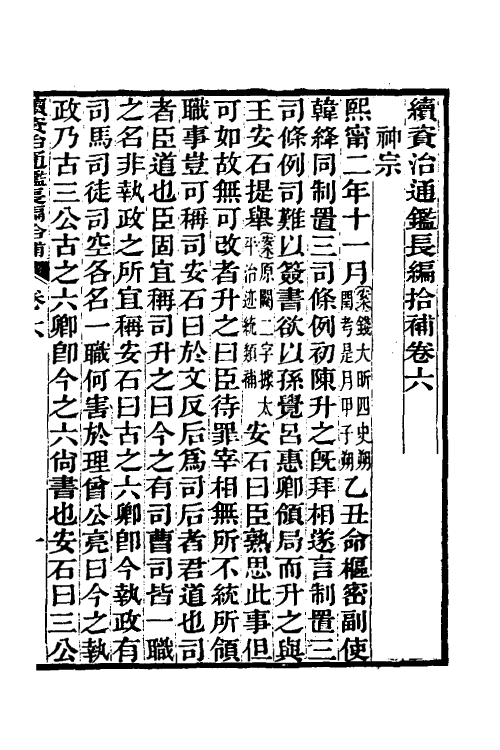 續資治通鑑長編拾補卷六
神宗
熙甯二年十一月案錢大昕四史朔閏考是月甲子朔乙丑命樞密副使
韓絳同制置三司條例初陳升之旣拜相遂言制置三
司條例司難以簽書欲以孫覺呂惠卿領局而升之與
王安石提舉案原闕二字據太平治迹統類補安石曰臣熟思此事但
可如故無可改者升之曰臣待罪宰相無所不統所領
職事豈可稱司安石曰於文反后爲司后者君道也司
者臣道也臣固宜稱司升之曰今之有司曹司皆一職
之名非執政之所宜稱安石曰古之六卿卽今執政有
司馬司徒司空各名一職何害於理曾公亮曰今之執
政乃古三公古之六卿卽今之六尙書也安石曰三公
續資治通鑑長編拾補
卷六
一